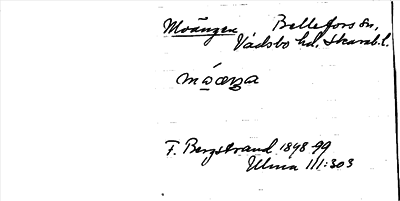 Moängen Bellefors sn,
Vadsbo hd, Skarab.l.
F. Bergstrand 1898-99
Ulma 111:303